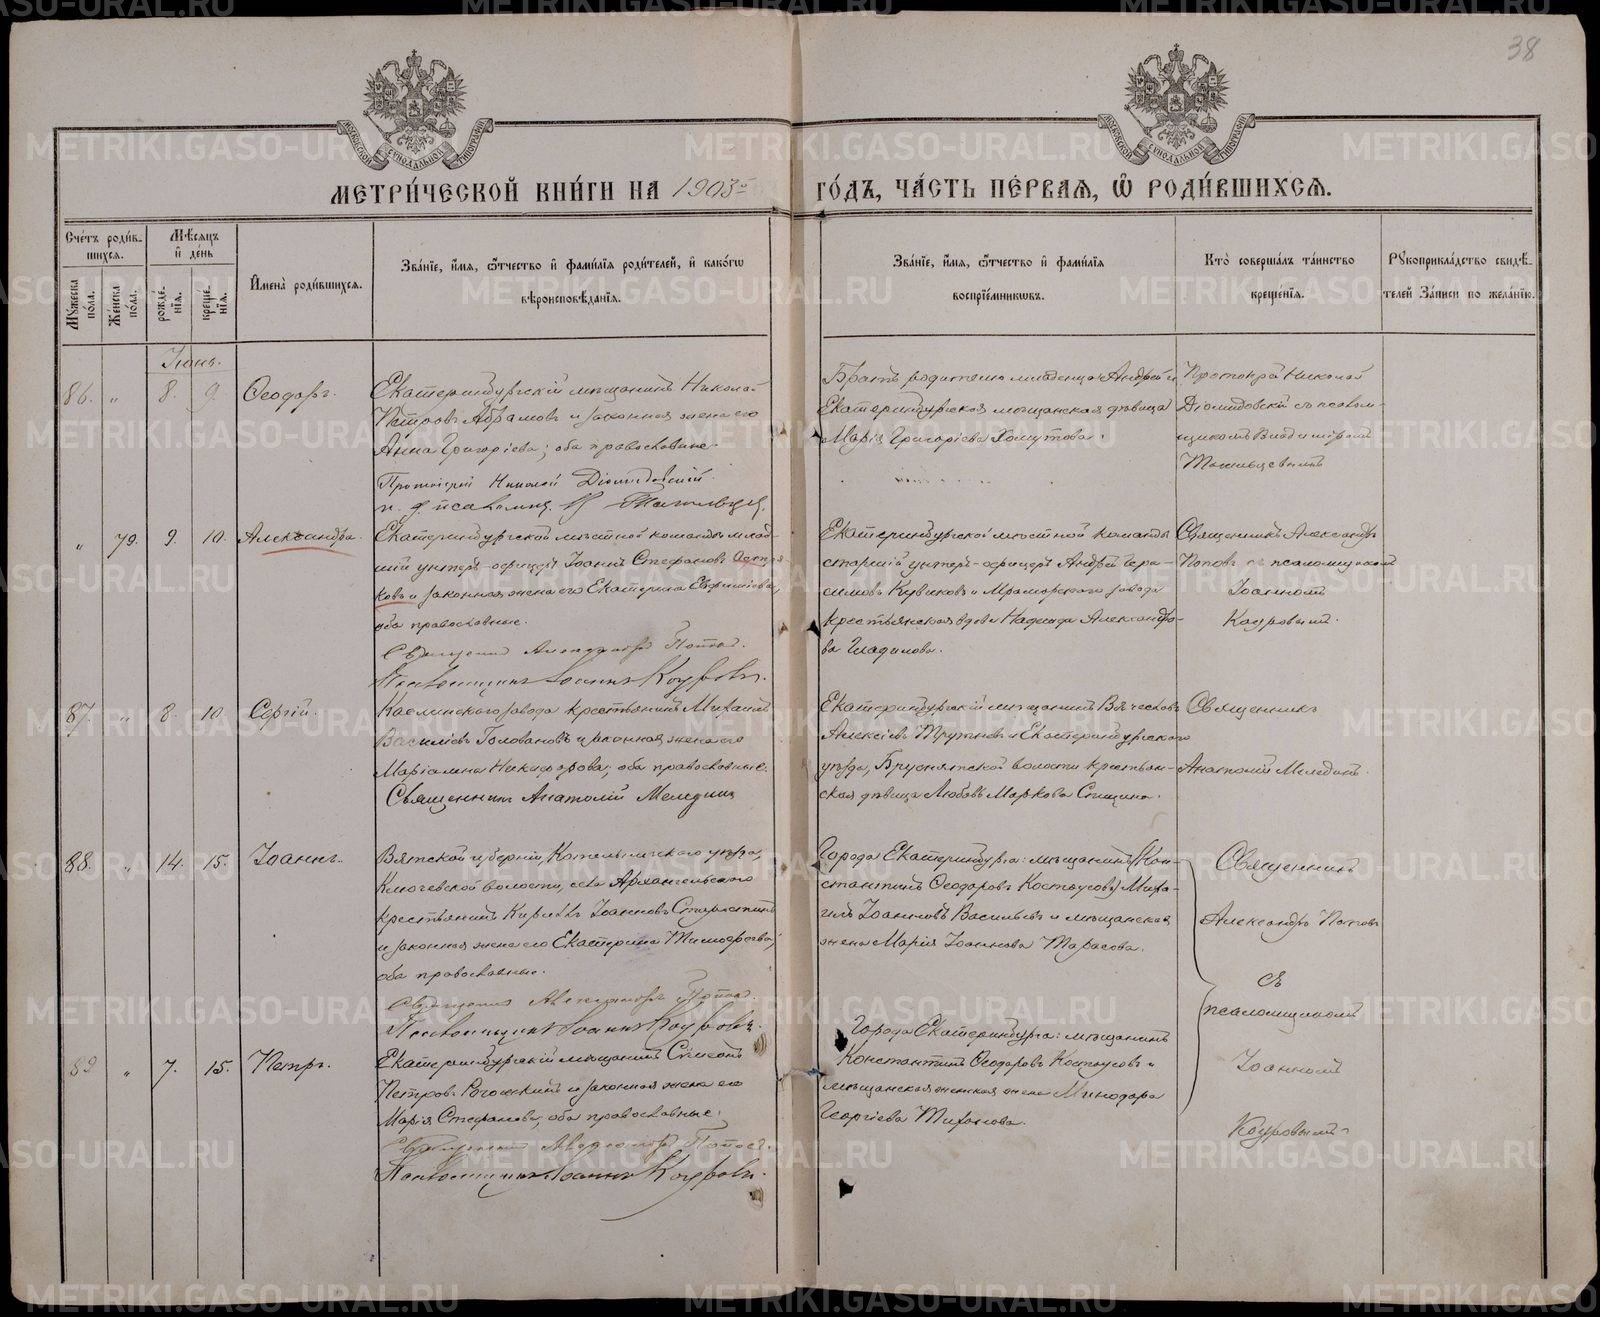 38
МЕТРИ́ЧЕСКОЙ КНИ́ГИ НА 1903й ГО́ДЪ, ЧА́СТЬ ПЕ́РВАЯ, Ѡ РОДИ́ВШИХСЯ.
Сче́тъ роди́в-
шихся.
Му́жеска по́ла.
Же́нска по́ла.
Мѣ́сяцъ
и҆ де́нь
рожде́-
нїя.
креще́-
нїя.
И҆мена̀ роди́вшихся.
Зва́нїе, и҆́мя, ѻ҆́тчество и҆ фами́лїя роди́телей, и҆ како́гѡ
вѣроисповѣ́данїя.
Зва́нїе, и҆́мя, ѻ҆́тчество и҆ фами́лїя
воспрїе́мниковъ.
Кто̀ соверша́лъ та́инство
креще́нїя.
Рꙋкоприкла́дство свидѣ́-
телей За́писи по жела́нїю.
Іюнь.
86. " 8. 9. Ѳеодоръ.
Екатеринбургскій мѣщанинъ Николай
Петровъ Абрамовъ и законная жена его
Анна Григоріева; оба православные.
Протоіерей Николай Діомидовскій.
Братъ родителю младенца Андрей и
Екатеринбургская мѣщанская дѣвица
Марія Григоріева Хомутова.
Николай
Діомидовскій съ псалом-
щикомъ
" 79. 9. 10. Александра.
Екатеринбургской мѣстной команды млад-
шій унтеръ-офицеръ Іоаннъ Стефановъ
и законная жена его Екатерина Евфиміева,
оба православные.
Священникъ Александръ Поповъ.
Псаломщикъ Іоаннъ Коуровъ.
Екатеринбургской мѣстной команды
старшій унтеръ-офицеръ Андрей Гера-
симовъ Кувиковъ и Мраморского завода
крестьянская вдова Надежда Александро-
ва Гладилова.
Священникъ Александръ
Поповъ съ псаломщикомъ
Іоанномъ
Коуровымъ.
87. " 8. 10. Сергій.
Каслинскаго завода крестьянинъ Михаилъ
Василіевъ Головановъ и законная жена его
Маріамна Никифорова; оба православные.
Священникъ Анатолій Меледин
Екатеринбургскій мѣщанинъ Вячеславъ
Алексіевъ Тружневъ и Екатеринбургскаго
уѣзда, Бруснятской волости крестьян-
ская дѣвица Любовь Маркова Спицина.
Священникъ
Анатолій Меледин.
88. " 14. 15. Іоаннъ.
Вятской губерніи, Котельничскаго уѣзда,
Ключевской волости, села Архангельскаго
крестьянинъ Кириллъ Іоанновъ Старостинъ
и законная жена его Екатерина Тимофеева;
оба православные.
Священникъ Александръ Поповъ.
Псаломщикъ Іоаннъ Коуровъ.
Города Екатеринбурга: мѣщанинъ (Кон-
стантинъ Ѳеодоровъ Костоусовъ) Миха-
илъ Іоанновъ Васильевъ и мѣщанская
жена Марія Іоаннова Тарасова.
Священникъ
Александръ Поповъ
съ
псаломщикомъ
Іоанномъ
Коуровымъ.
89 " 7. 15. Петръ.
Екатеринбургскій мѣщанинъ Симеонъ
Петровъ Рогожкинъ и законная жена его
Марія Стефанова; оба православные.
Священникъ Александръ Поповъ.
Псаломщикъ Іоаннъ Коуровъ.
Города Екатеринбурга: мѣщанинъ
Константинъ Ѳеодоровъ Костоусовъ и
мѣщанская жена Минодора
Георгіева Тиханова.
METRIKI.GASO-URAL.RU